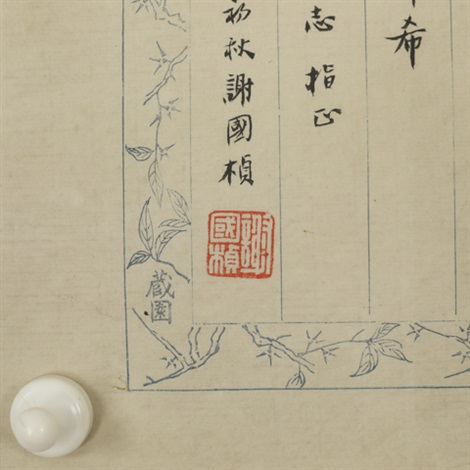 希
志 指正
初秋謝國楨
謝國楨
藏園